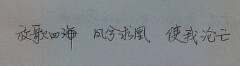 放歌四海 凤兮求凰 使我沦亡